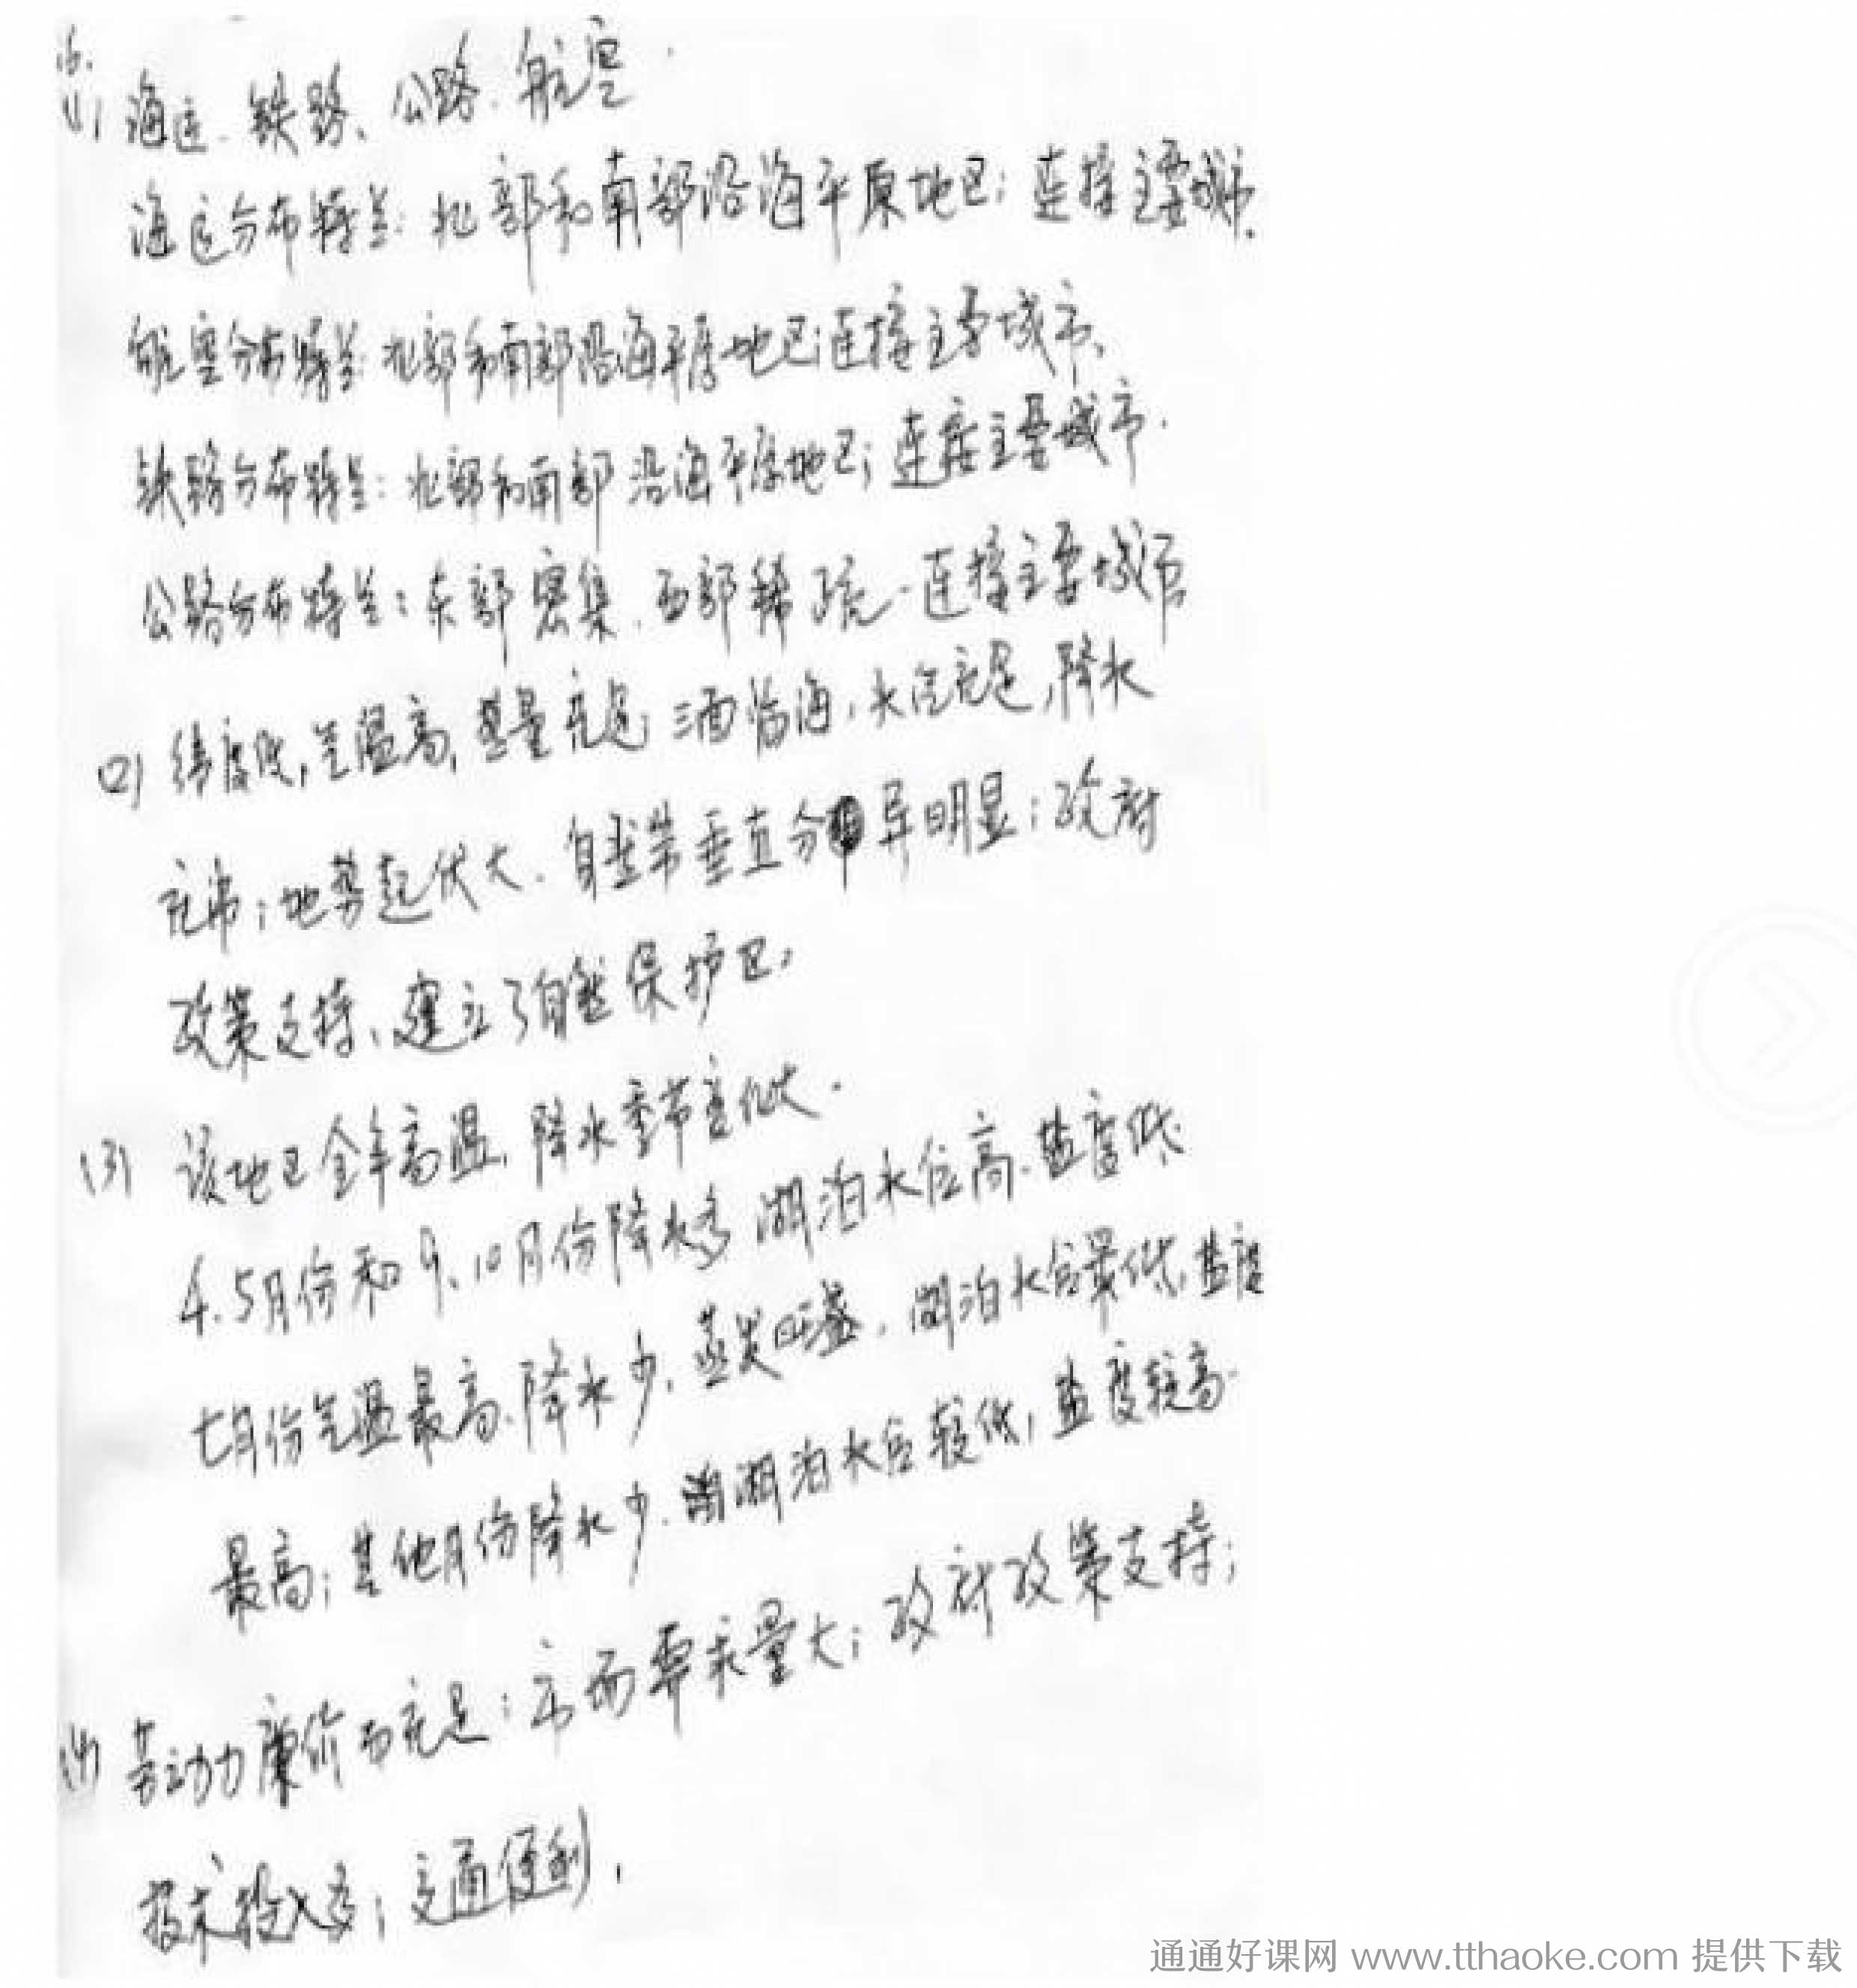 16.
(1) 海运、铁路、公路、航空.
海运分布特点：北部和南部沿海平原地区；连接主要城市.
航空分布特点：北部和南部沿海平原地区；连接主要城市.
铁路分布特点：北部和南部沿海平原地区；连接主要城市.
公路分布特点：东部密集，西部稀疏. 连接主要城市
(2) 纬度低，气温高，热量充足；三面临海，水汽充足，降水
充沛；地势起伏大，自然带垂直分异明显；政府
政策支持，建立了自然保护区.
(3) 该地区全年高温，降水季节变化大.
4、5月份和9、10月份降水多，湖泊水位高，盐度低.
七月份气温最高，降水少，蒸发旺盛，湖泊水位最低，盐度
最高；其他月份降水少，湖泊水位较低，盐度较高.
(4) 劳动力廉价而充足；市场需求量大；政府政策支持；
技术投入多；交通便利.
通通好课网 www.tthaoke.com 提供下载